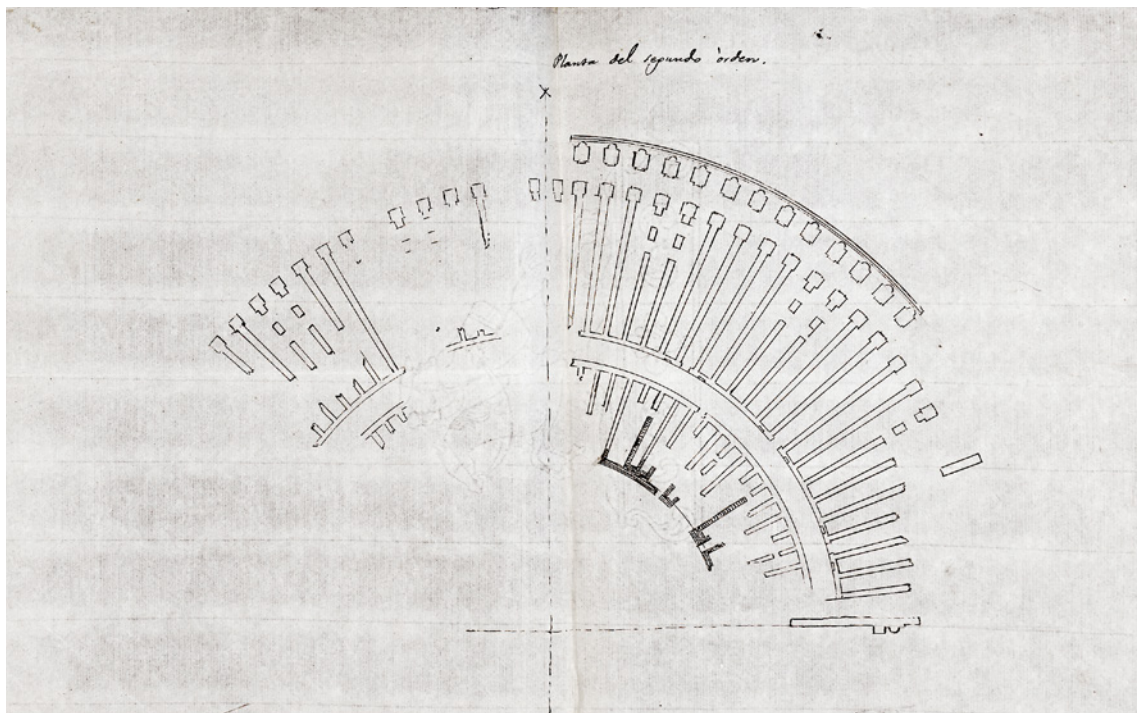 Planta del segundo orden.